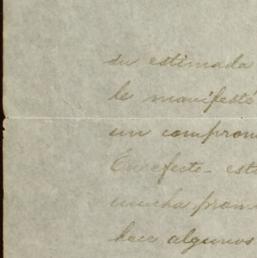 su estimada
le manifesté
un compromi
En efecto- est
mucha prom
hace algunos